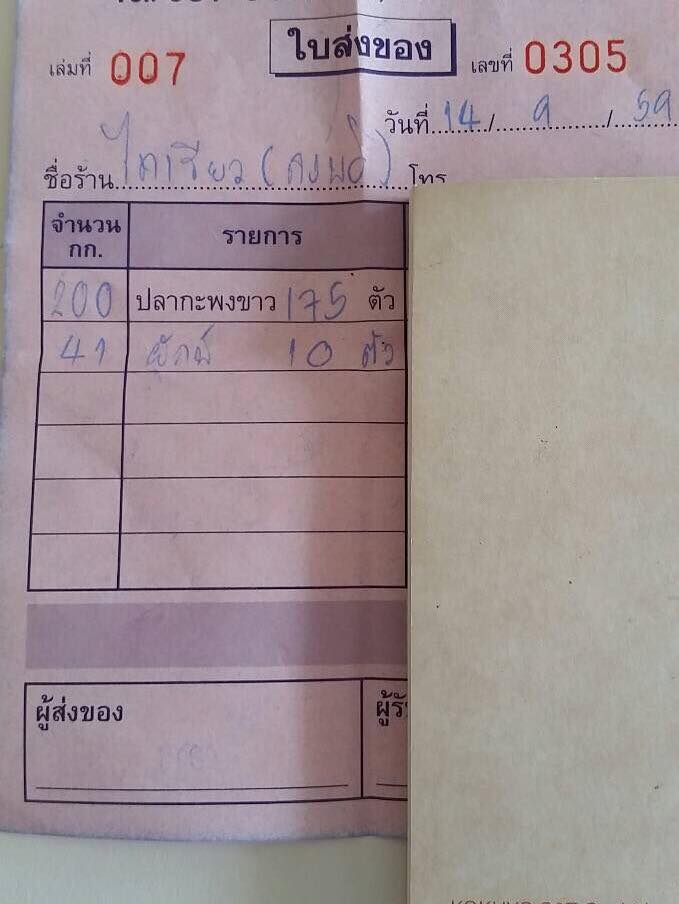 ใบส่งของ
เล่มที่ 007 เลขที่ 0305
วันที่ 14 / 9 / 59
ชื่อร้าน ไต๋เขียว โทร
จำนวน กก. รายการ
200 ปลากะพงขาว 175 ตัว
41 ยักษ์ 10 ตัว
ผู้ส่งของ ผู้รับ